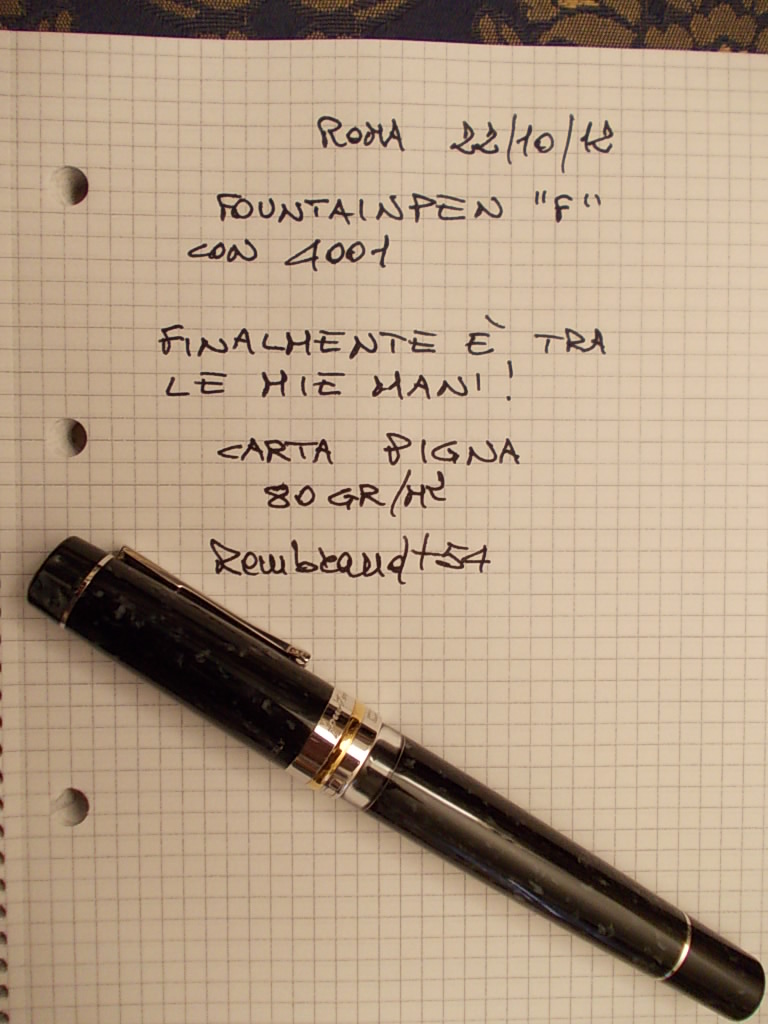 ROMA 22/10/12
FOUNTAINPEN "F"
CON 4001
FINALMENTE È TRA
LE MIE MANI!
CARTA PIGNA
80 GR/M²
Rembrandt54